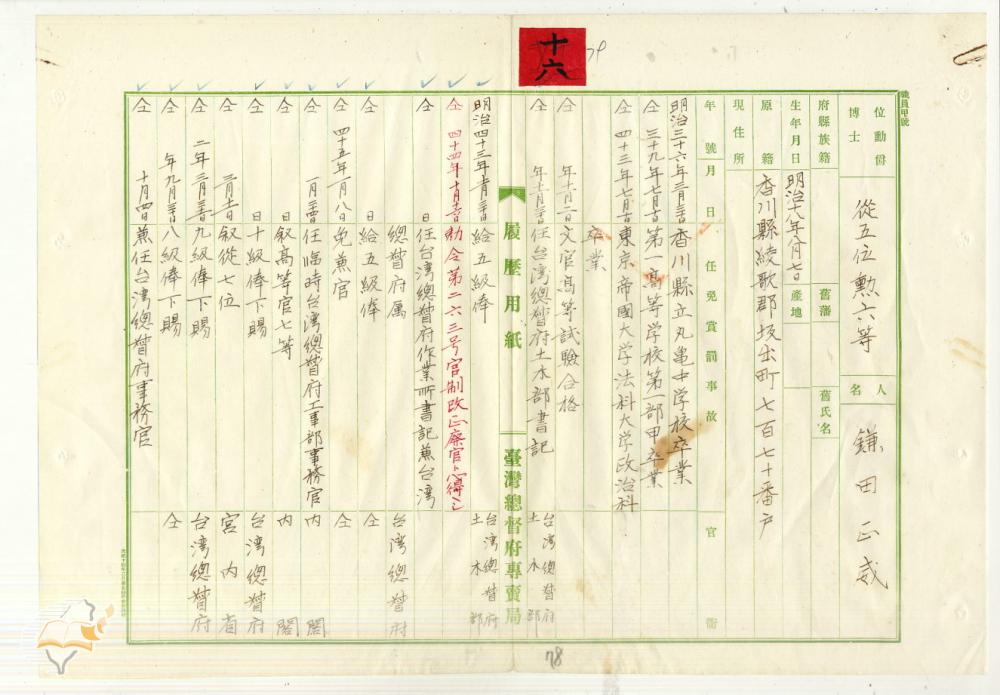 十六
79
職員甲號
位勳爵
博士
從五位勲六等
人
名
鎌田正威
府縣族籍
舊藩
舊氏名
生年月日
明治十八年八月七日
產地
原籍
香川縣綾歌郡坂出町七百七十番戸
現住所
年號月日
任免賞罰事故
官衙
明治三十六年三月三十日
香川縣立丸亀中学校卒業
仝三十九年七月
第一高等学校第一部甲卒業
仝四十三年七月
東京帝國大学法科大学政治科
卒業
仝年十一月二日
文官高等試驗合格
仝年十二月
任台湾總督府土木部書記
台湾總督府
土木部
履歷用紙
臺灣總督府專賣局
明治四十三年十二月
給五級俸
台湾總督府
土木部
仝四十四年十月
勅令第二六三号官制改正廃官ト心得ヘシ
仝日
任台湾總督府作業所書記兼台湾
總督府属
台湾總督府
仝日
給五級俸
仝
仝四十五年一月八日
免兼官
仝
仝一月
任臨時台湾總督府工事部事務官
内閣
仝日
叙高等官七等
内閣
仝日
十級俸下賜
台湾總督府
仝三月十一日
叙從七位
宮内省
仝二年三月三十一日
九級俸下賜
台湾總督府
仝年九月三十日
八級俸下賜
仝
仝十月四日
兼任台湾總督府事務官
78